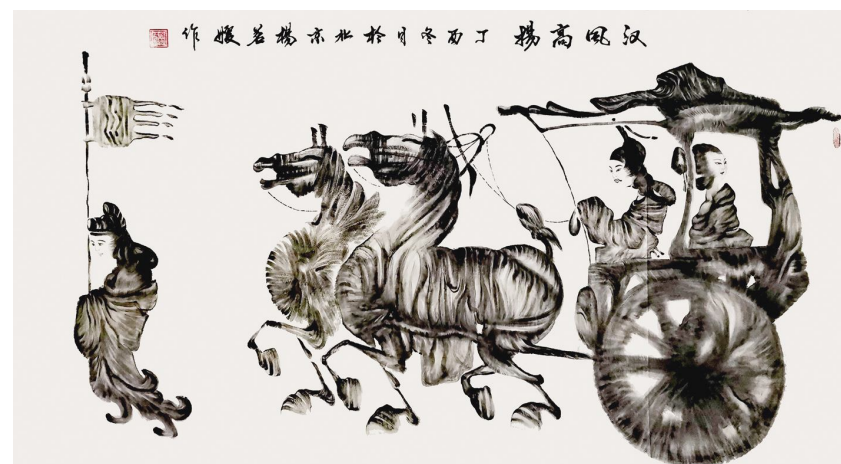 汉风高揚 丁酉冬月於北京楊若媛作